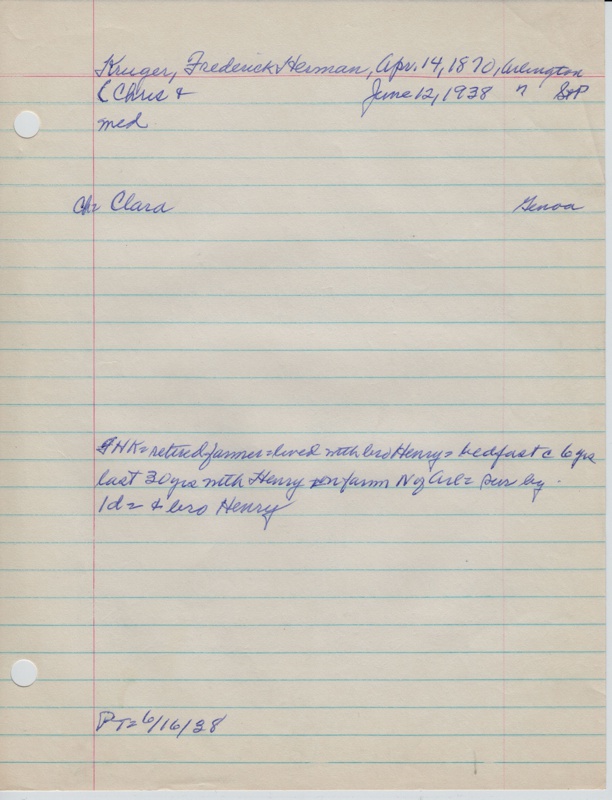 Kruger, Frederick Herman, Apr. 14, 1870, Arlington
( Chris + June 12, 1938 " StP
med
Ch= Clara Genoa
FHK= retired farmer= lived with bro Henry= bedfast c 6 yrs
last 30 yrs with Henry on farm N of Arl= sur by
1d= + bro Henry
PT= 6/16/38